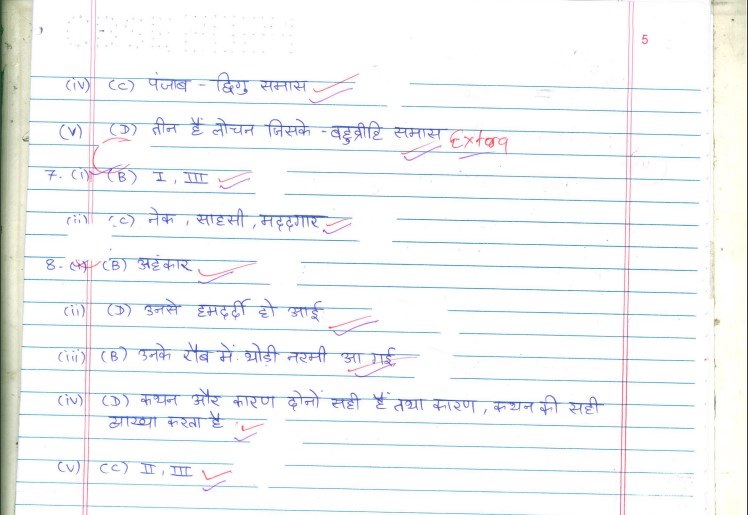 5
(iv) (C) पंजाब - द्विगु समास
(v) (D) तीन हैं लोचन जिसके - बहुव्रीहि समास Extra
7. (i) (B) I, III
(ii) (C) नेक, साहसी, मददगार
8. (i) (B) अहंकार
(ii) (D) उनसे हमदर्दी हो आई
(iii) (B) उनके रौब में थोड़ी नरमी आ गई
(iv) (D) कथन और कारण दोनों सही हैं तथा कारण, कथन की सही
व्याख्या करता है
(v) (C) II, III